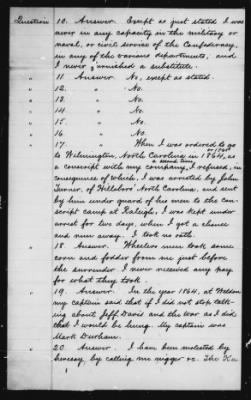 Question 10. Answer. Except as just stated I was
never in any capacity in the military or
naval, or civil service of the Confederacy,
in any of the various departments, and
I never furnished a substitute.
" 11. Answer. No, except as stated.
" 12. " No.
" 13. " No.
" 14 " No.
" 15. " No.
" 16 " No.
" 17. " When I was ordered to go
to Wilmington, North Carolina in 1864, as
a conscript with my company, I refused, in
consequence of which, I was arrested by John
Turner, of Hillsboro' North Carolina, and sent
by him under guard of his men to the con-
script camp at Raleigh, I was kept under
arrest for two days, when I got a chance
and run away. I took no oath.
" 18. Answer. Wheelers men took some
corn and fodder from me just before
the surrender I never received any pay
for what they took.
" 19. Answer. In the year 1864, at Weldon
my captain said that if I did not stop talk-
ing about Jeff Davis and the war as I did
that I would be hung. My captain was
Mark Durham.
" 20. Answer. I have been molested by
heresay, by calling me nigger &c. The Ku